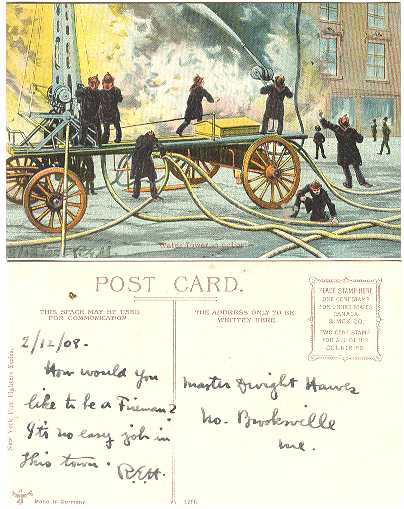 Water Tower
POST CARD.
THIS SPACE MAY BE USED
FOR COMMUNICATION
THE ADDRESS ONLY TO BE
WRITTEN HERE.
PLACE STAMP HERE
ONE CENT STAMP
FOR UNITED STATES
CANADA
& MEXICO.
TWO CENT STAMP
FOR ALL OTHER
COUNTRIES
2/12/08-
How would you
like to be a Fireman?
It's no easy job in
this town.
R.E.H.
Master Dwight Hawes
No. Brooksville
Me.
New York Fire Fighters Series.
Made in Germany